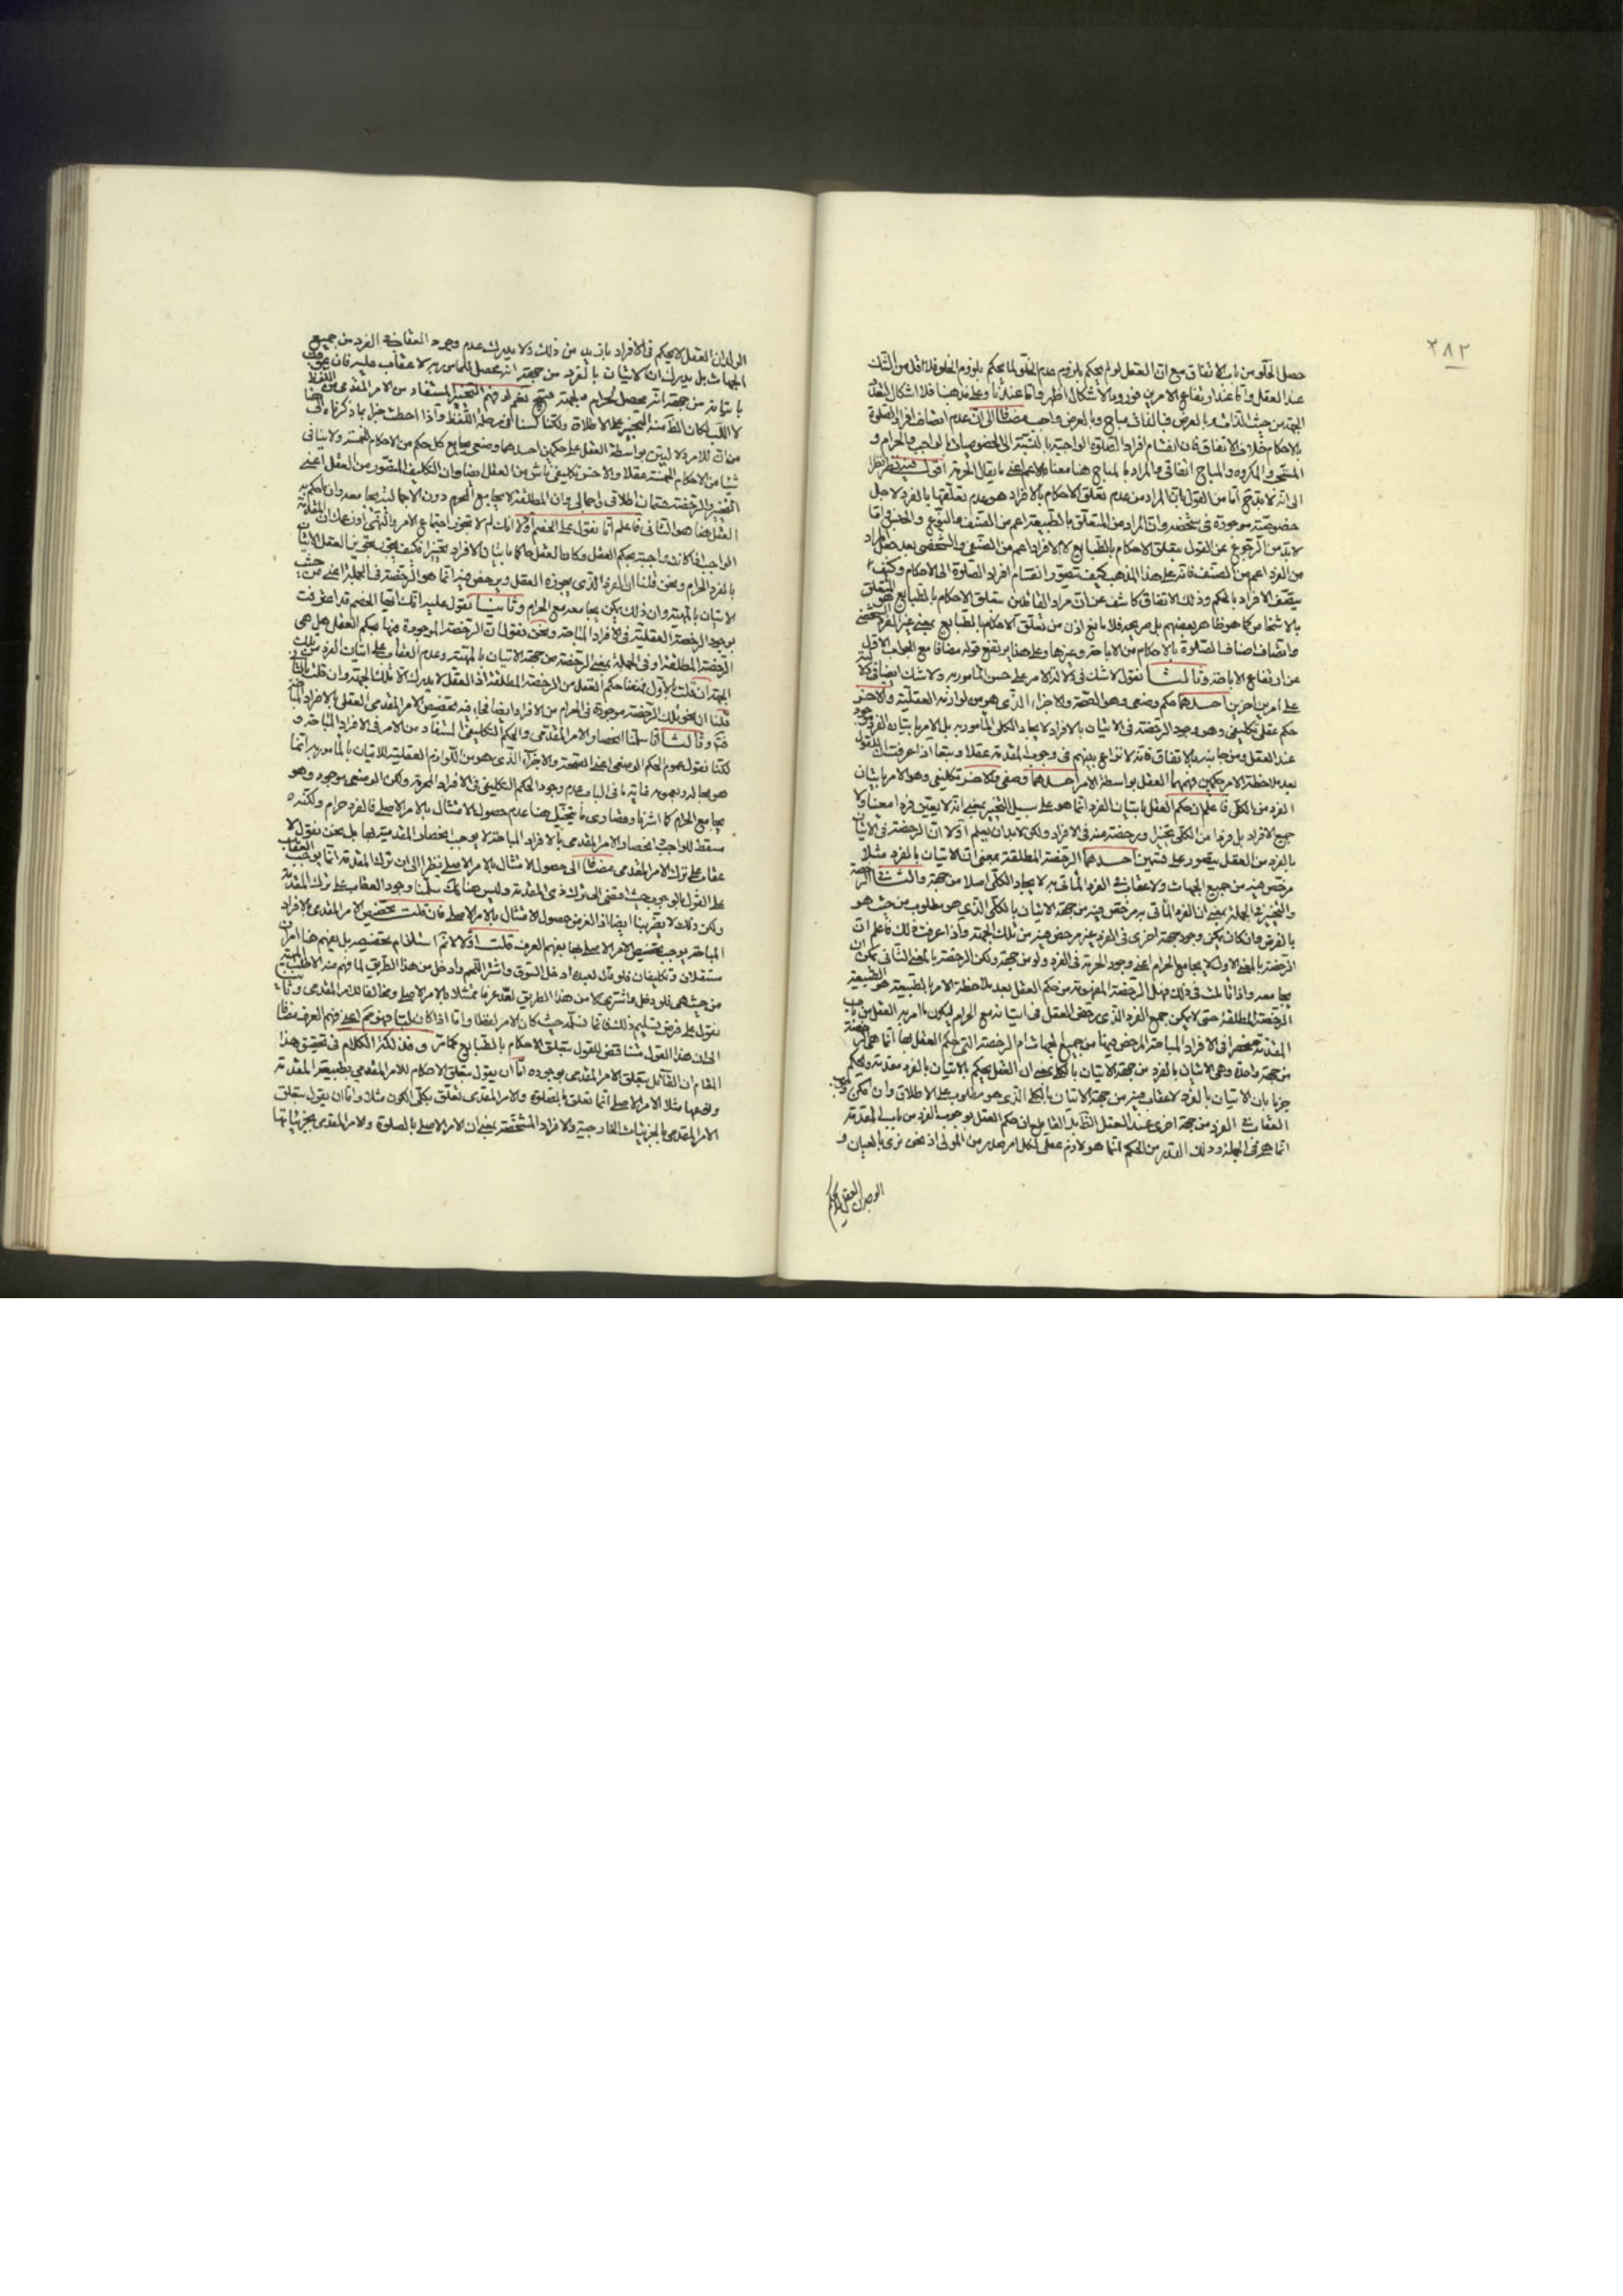 ٢٨٢
حصل الخلو من باب الاتفاق مع ان العقل لو لم يحكم بلزوم عدم الخلو لما يحكم بلزوم الخلو فلا اقل من الشك
عند العقل واما عند ارتفاع الامرين فوروده الاشكال اظهر واما عندنا وعلى مذهبنا فلا اشكال
الجهة من حيث الذات بالعرض مباح وبالعرض واجب مضافا الى ان عدم اتصاف افراد الصلوة
بالاحكام خلاف الاتفاق فان انقسام افراد الصلوة الواجبة بالنسبة الى الخصوصيات الى الواجب والحرام و
المستحب والمكروه والمباح اتفاقي والمراد بالمباح هنا معناه الاعم اعني ما يقابل الحرمة اقول فيه نظر
الى انه لا بد اما من القول بان المراد من عدم تعلق الاحكام بالافراد هو عدم تعلقها بالفرد لاجل
خصوصية موجودة في شخصه وان المراد من المتعلق بالطبيعة اعم من الصنف والنوع والجنس واما
لا بد من الرجوع عن القول بتعلق الاحكام بالطبايع لا الافراد اعم من الصنفي والشخصي بعد
من الفرد اعم من الصنف فانه على هذا المذهب كيف يتصور انقسام افراد الصلوة الى الاحكام وكيف
يتصف الافراد بالحكم وذلك الاتفاق كاشف عن ان مراد القائلين بتعلق الاحكام بالطبايع هو
بالاشخاص كما هو ظاهر بعضهم بل صريحه فلا مانع اذن من تعلق الاحكام بالطبايع بمعنى غير الفرد الشخصي
واتصاف اصناف الصلوة بالاحكام من الاباحة وغيرها وعلى هذا يرتفع قوله مضافا مع الجواب الاول
عن ارتفاع الاباحة وثالثا نقول لا شك في دلالة الامر على حسن المأمور به ولا شك ايضا في
على امرين آخرين احدهما حكم وضعي وهو الصحة والاجزاء الذي هو من لوازمه العقلية والاخر
حكم عقلي تكليفي وهو وجود الرخصة في الاتيان بالافراد لايجاد الكلي المأمور به بل الامر باتيان الفرد
عند العقل ومن جانبه بالاتفاق فانه لا نزاع بينهم في وجوب المقدمة عقلا وتبعا اذا عرفت ان العقل
بعد ملاحظة الامر حكمين فهم العقل بواسطة الامر احدهما وضعي والاخر تكليفي وهو الامر باتيان
الفرد من الكلي فاعلم ان حكم العقل باتيان الفرد انما هو على سبيل التخيير بمعنى انه لا يعين فردا معينا ولا
جميع الافراد بل فردا من الكلي تخييرا ورخصة منه في الافراد ولكن لا بد ان يعلم اولا ان الرخصة في الاتيان
بالفرد من العقل يتصور على قسمين احدهما الرخصة المطلقة بمعنى ان الاتيان بالفرد مثلا
مرخص فيه من جميع الجهات ولا عقاب في الفرد المأتي به لايجاد الكلي اصلا من جهة والثاني الرخصة
والتخيير في الجملة بمعنى ان الفرد المأتي به مرخص فيه من جهة الاتيان بالكلي الذي هو مطلوب من حيث هو
بالفرض وان كان يمكن وجود جهة اخرى في الفرد غير مرخص فيه من تلك الجهة واذا عرفت ذلك فاعلم ان
الرخصة بالمعنى الاول لا يجامع الحرام اعني وجود الحرمة في الفرد ولو من جهة ولكن الرخصة بالمعنى الثاني يمكن ان
يجامعه واذا تأملت في ذلك فهل الرخصة المفهومة من حكم العقل بعد ملاحظة الامر بالطبيعة هو
الرخصة المطلقة حتى لا يمكن جمع الفرد الذي رخص العقل في اتيانه مع الحرام ليكون ما امر به العقل من باب
المقدمة منحصرا في الافراد المباحة المرخص فيها من جميع الجهات ام الرخصة التي حكم العقل بها انما هي
من جهة واحدة وهي الاتيان بالفرد من جهة الاتيان بالكلي بمعنى ان العقل يحكم بالاتيان بالفرد مقدمة ويحكم
جزما بان الاتيان بالفرد لا عقاب فيه من جهة الاتيان بالكلي الذي هو مطلوب على الاطلاق وان امكن
العقاب في الفرد من جهة اخرى عند العقل الظاهر ان حكم العقل بوجوب الفرد من باب المقدمة
انما هو في الجملة وذلك القدر من الحكم انما هو لازم عقلي لكل امر صدر من المولى اذ نحن نرى بالعيان و
الوجدان العقل لا يحكم
الوجدان ان العقل لا يحكم في الافراد بازيد من ذلك ولا يدرك عدم وجود العقاب في الفرد من جميع
الجهات بل يدرك ان الاتيان بالفرد من جهة انه محصل للمأمور به لا عقاب عليه فان
باتيانه من جهة انه محصل للحرام نعم لو فهم التخيير المستفاد من الامر المقدمي من اللفظ
لا اللب لكان الظاهر منه التخيير على الاطلاق ولكنا لسنا في مرحلة اللفظ واذا احطت خبرا بما ذكرناه
من ان للامر لازمين بواسطة العقل على حكمين احدهما وضعي يجامع كل حكم من الاحكام الخمسة ولا ينافي
شيئا من الاحكام الخمسة عقلا والاخر تكليفي ناش من العقل ايضا وان التكليف المتصور من العقل اعني
التخيير والرخصة قسمان اطلاقي واجمالي وان المطلقة لا يجامع المحرم دون الاجمالية يجامعه وان
العقل ايضا هو الثاني فاعلم انا نقول على الخصم اولا انك لم لا تجوز اجتماع الامر والنهي
الواجب اذا كان واجبة بحكم العقل وكان العقل حاكما باتيان الافراد تخييرا فكيف يجوز العقل الاتيان
بالفرد الحرام ونحن قلنا ان الفرد الذي يجوزه العقل ويرخص فيه انما هو الرخصة في الجملة اعني من حيث
الاتيان بالمهية وان ذلك يمكن يجامعه مع الحرام وثانيا نقول عليه انك ايها الخصم قد اعترفت
بوجود الرخصة العقلية في الافراد المباحة ونحن نقول ان الرخصة الموجودة فيها بحكم العقل هل هي
الرخصة المطلقة او في الجملة بمعنى الرخصة من جهة الاتيان بالمهية وعدم العقاب على اتيان الفرد من تلك
الجهة ان قلت بالاول منعنا حكم العقل من الرخصة المطلقة اذ العقل لا يدرك الا تلك الجهة وان قلت بالثاني
قلنا ان نحو تلك الرخصة موجودة في الحرام من الافراد ايضا فما وجه تخصيص الامر المقدمي العقلي بالافراد المباحة
فتم وثالثا انا سلمنا انحصار الامر المقدمي والحكم التكليفي المستفاد من الامر في الافراد المباحة و
لكنا نقول عموم الحكم الوضعي اعني الصحة والاجزاء الذي هو من اللوازم العقلية للاتيان بالمأمور به انما
هو بحاله وعمومه غاية ما في الباب عدم وجود الحكم التكليفي في الافراد المحرمة ولكن الوضعي موجود وهو
يجامع الحرام كما اشرنا وقصارى ما يتخيل هنا عدم حصول الامتثال بالامر الاصلي فالفرد حرام ولكنه
مسقط للواجب وانحصار الامر المقدمي بالافراد المباحة لا يوجب انحصار المقدمية بها بل نحن نقول لا
عقاب على ترك الامر المقدمي مضافا الى حصول الامتثال بالامر الاصلي نظرا الى ان ترك المقدمة انما يوجب العقاب
على القول بالوجوب حيث افضى الى ترك ذي المقدمة وليس هنا كك سلمنا وجود العقاب على ترك المقدمة
ولكن ذلك لا يضرنا ايضا اذ الغرض حصول الامتثال بالامر الاصلي فان قلت تخصيص الامر المقدمي بالافراد
المباحة يوجب تخصيص الامر الاصلي بها بفهم العرف قلت اولا لا نم استلزام تخصيصه بل يفهم هنا امران
مستقلان وتكليفان فلو قال لعبده ادخل السوق واشتر اللحم وادخل من هذا الطريق لما فهم منه الا طلب المهية
من حيث هي فلو دخل واشترى لا من هذا الطريق لعد عرفا ممتثلا بالامر الاصلي ومخالفا للامر المقدمي وثانيا
نقول على فرض تسليم ذلك فانما نسلمه حيث كان الامر لفظا واما اذا كان لبيا فهو حكم العقل لا فهم العرف مضافا
الى ان هذا القول مناقض للقول بتعلق الاحكام بالطبايع كما مر وفذلكة الكلام في تحقيق هذا
المقام ان القائل بتعلق الامر المقدمي بوجوده اما ان يقول بتعلق الاحكام للامر المقدمي بطبيعة المقدمة
ونوعها مثلا الامر الاصلي انما تعلق بالصلوة والامر المقدمي تعلق بكلي الكون مثلا واما ان يقول بتعلق
الامر المقدمي بالجزئيات الخارجية والافراد المشخصة بمعنى ان الامر الاصلي بالصلوة والامر المقدمي بجزئياتها